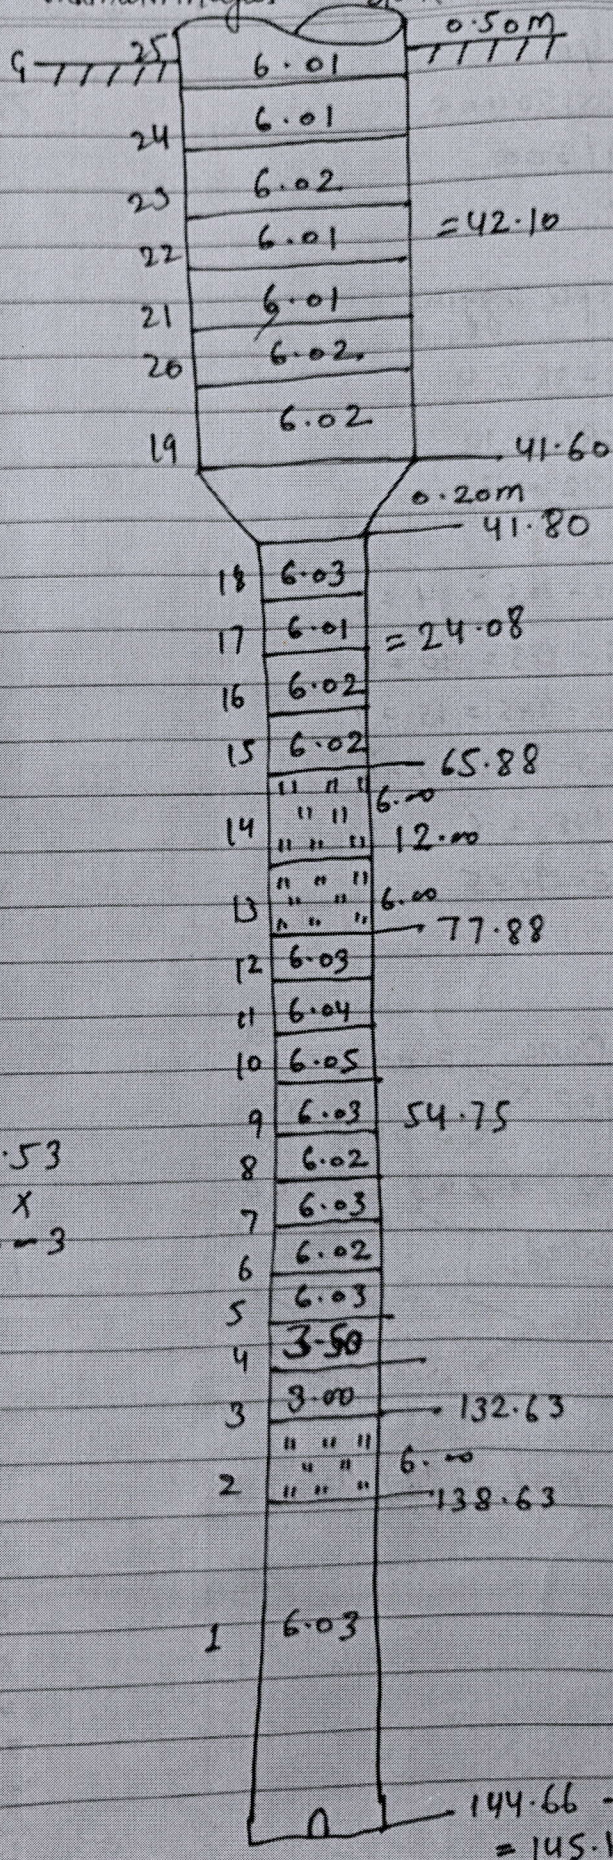 0.50m
G 25 6.01
24 6.01
23 6.02
22 6.01 =42.10
21 6.01
20 6.02
19 6.02
41.60
0.20m
41.80
18 6.03
17 6.01 =24.08
16 6.02
15 6.02
65.88
14 6.00
12.00
13 6.00
77.88
12 6.03
11 6.04
10 6.05
9 6.03 54.75
.53
8 6.02
x
7 6.03
-3
6 6.02
5 6.03
4 3.50
3 3.00 132.63
2 6.00
138.63
1 6.03
144.66 -
= 145.1